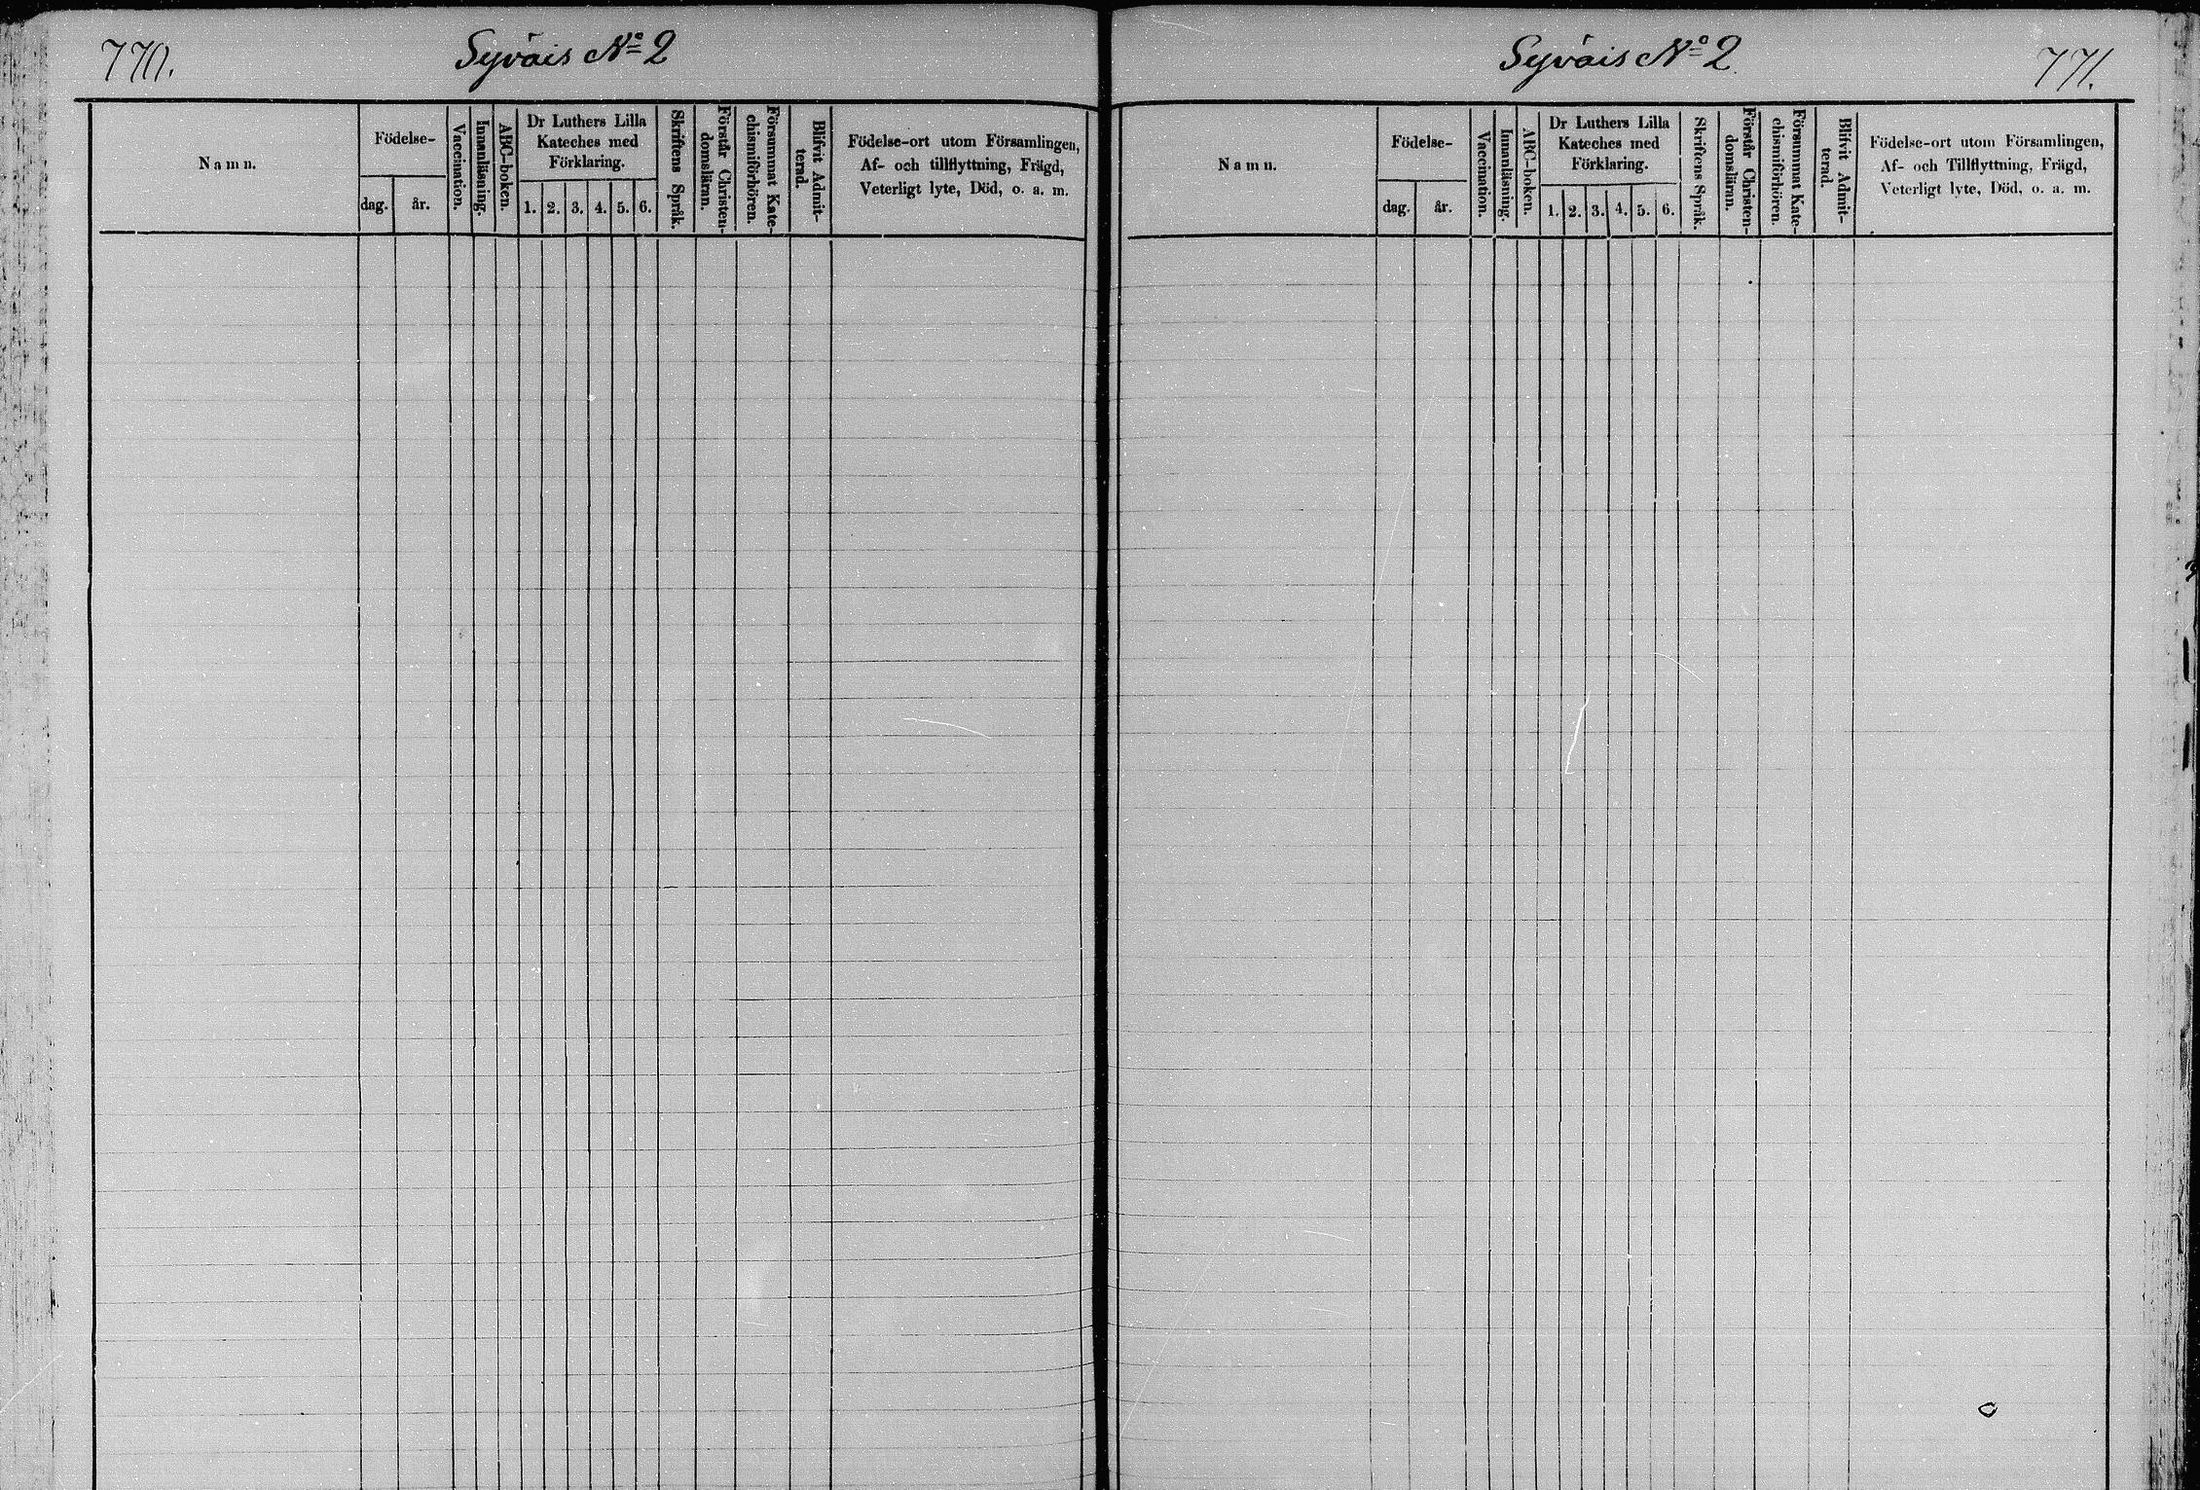 770.
Syväis No 2
Namn.
Födelse-
dag.
år.
Vaccination.
Innanläsning.
ABC-boken.
Dr Luthers Lilla
Kateches med
Förklaring.
1. 2. 3. 4. 5. 6.
Skriftens Språk.
Förstår Christen-
domsläran.
Försummat Kate-
chismiförhören.
Blifvit Admit-
terad.
Födelse-ort utom Församlingen,
Af- och tillflyttning, Frägd,
Veterligt lyte, Död, o. a. m.
Syväis No 2
771.
Namn.
Födelse-
dag.
år.
Vaccination.
Innanläsning.
ABC-boken.
Dr Luthers Lilla
Kateches med
Förklaring.
1. 2. 3. 4. 5. 6.
Skriftens Språk.
Förstår Christen-
domsläran.
Försummat Kate-
chismiförhören.
Blifvit Admit-
terad.
Födelse-ort utom Församlingen,
Af- och Tillflyttning, Frägd,
Veterligt lyte, Död, o. a. m.